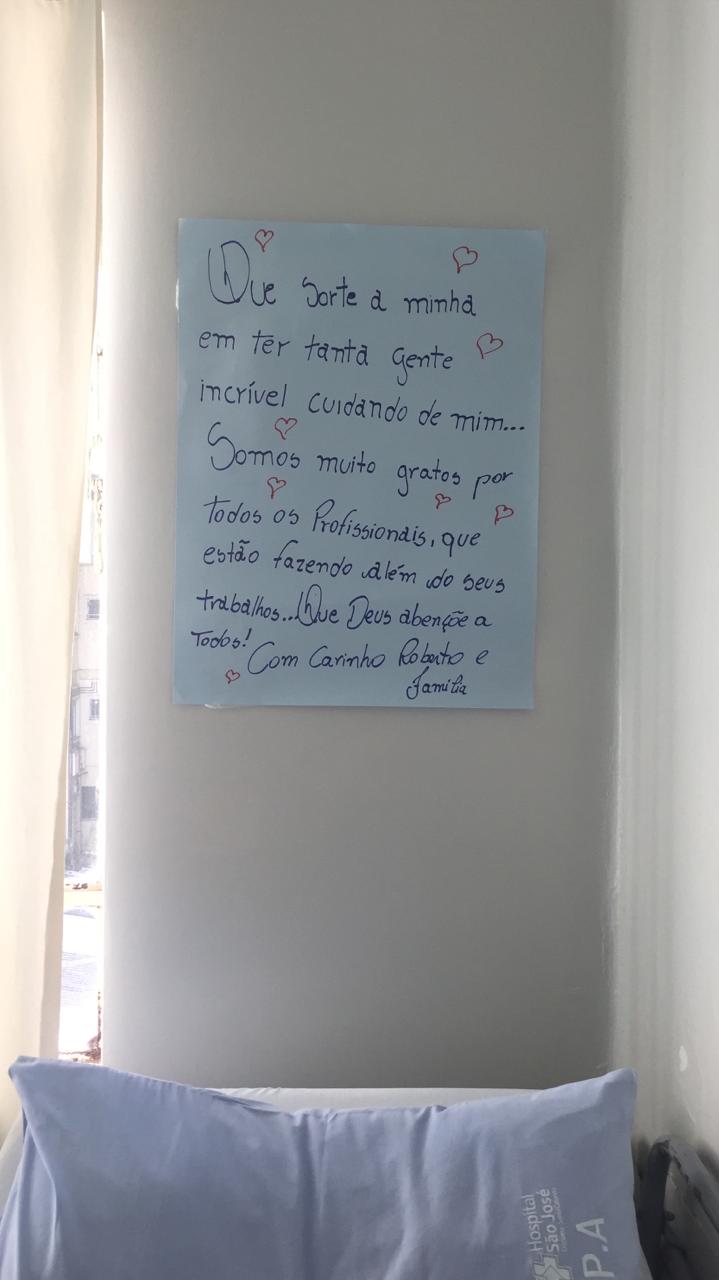 Que sorte a minha
em ter tanta gente
incrível cuidando de mim...
Somos muito gratos por
todos os Profissionais, que
estão fazendo além do seus
trabalhos... Que Deus abençõe a
Todos!
Com Carinho Roberto e
Família
Hospital
São José
P.A